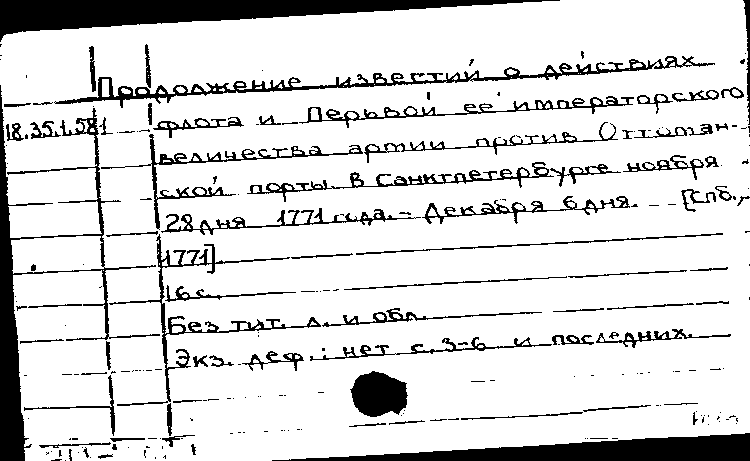 Продолжение известий о действиях
18.35.1.581 флота и Перьвой ее императорского
величества армии против Оттоман-
ской порты. В Санктпетербурге ноября
28 дня 1771 года. - Декабря 6 дня. - [Спб.,
1771].
16 с.
Без тит. л. и обл.
Экз. деф.: нет с. 3-6 и последних.